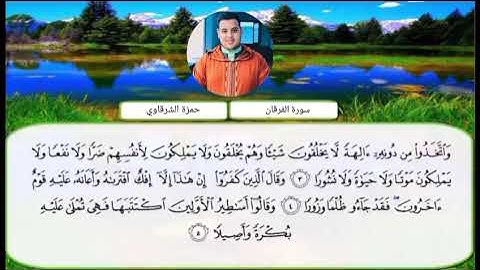 سورة الفرقان
حمزة الشرقاوي
وَاتَّخَذُوا مِن دُونِهِۦ ءَالِهَةً لَّا يَخْلُقُونَ شَيْـًٔا وَهُمْ يُخْلَقُونَ وَلَا يَمْلِكُونَ لِأَنفُسِهِمْ ضَرًّا وَلَا نَفْعًا وَلَا
يَمْلِكُونَ مَوْتًا وَلَا حَيَوٰةً وَلَا نُشُورًا ٣ وَقَالَ الَّذِينَ كَفَرُوا إِنْ هَٰذَا إِلَّا إِفْكٌ افْتَرَىٰهُ وَأَعَانَهُ عَلَيْهِ قَوْمٌ
ءَاخَرُونَ فَقَدْ جَآءُو ظُلْمًا وَزُورًا ٤ وَقَالُوا أَسَٰطِيرُ الْأَوَّلِينَ اكْتَتَبَهَا فَهِيَ تُمْلَىٰ عَلَيْهِ
بُكْرَةً وَأَصِيلًا ٥